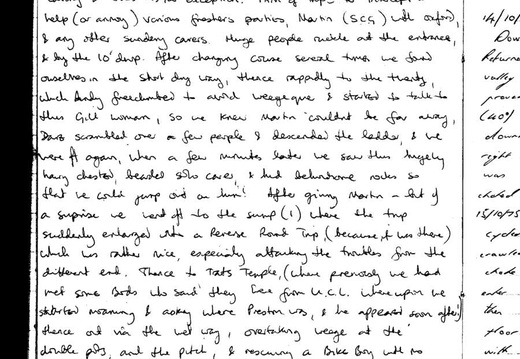 help (or annoy) various freshers parties, Martin (SCG) with oxford,
& any other sundry cavers. Huge people ruckle at the entrance,
& by the 10' drop. After changing course several times we found
ourselves in the short dry way, thence rapidly to the twenty,
which Andy freeclimbed to avoid & started to talk to
this Gill woman, so we knew Martin couldn't be far away,
Daz scrambled over a few people & descended the ladder, & we
were off again, when a few minutes later we saw this hugely
hairy chested, bearded solo caver, & hid behind some rocks so
that we could jump out on him! After Martin – bit of
a suprise we went off to the sump (1) where the trip
suddenly enlarged into a Reverse Round Trip, (because it was there)
which was rather nice, especially attacking the troubles from the
different end. Thence to Tratts Temple, (where previously we had
met some Birds who said they were from U.C.L. whereupon we
started moaning & asking where Preston was, & he appeared soon after)
thence out via the wet way, overtaking at the
double pots, and the pitch, & rescuing a BRKE Boy with no
14/10/
Dow
Returne
valley
prove
(40'
down
right
was
choked
15/10/75
cycle
crawle
choke
enter
then
floor
with